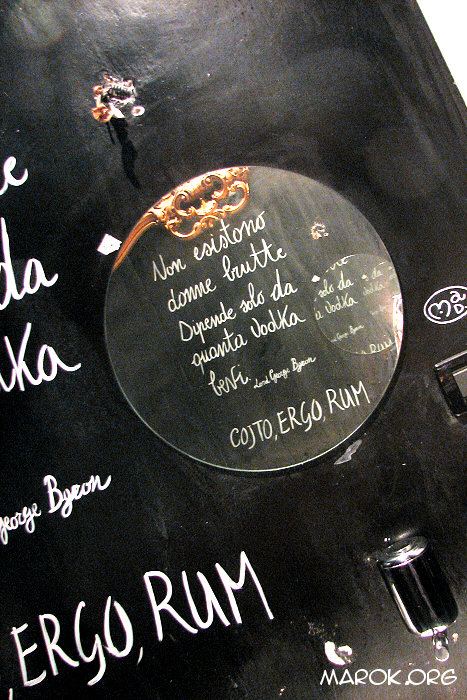 Non esistono
donne brutte
Dipende solo da
quanta Vodka
bevi. Lord George Byron
COJTO, ERGO, RUM
da
George Byron
, ERGO, RUM
solo da
a Vodka
MAROK.ORG